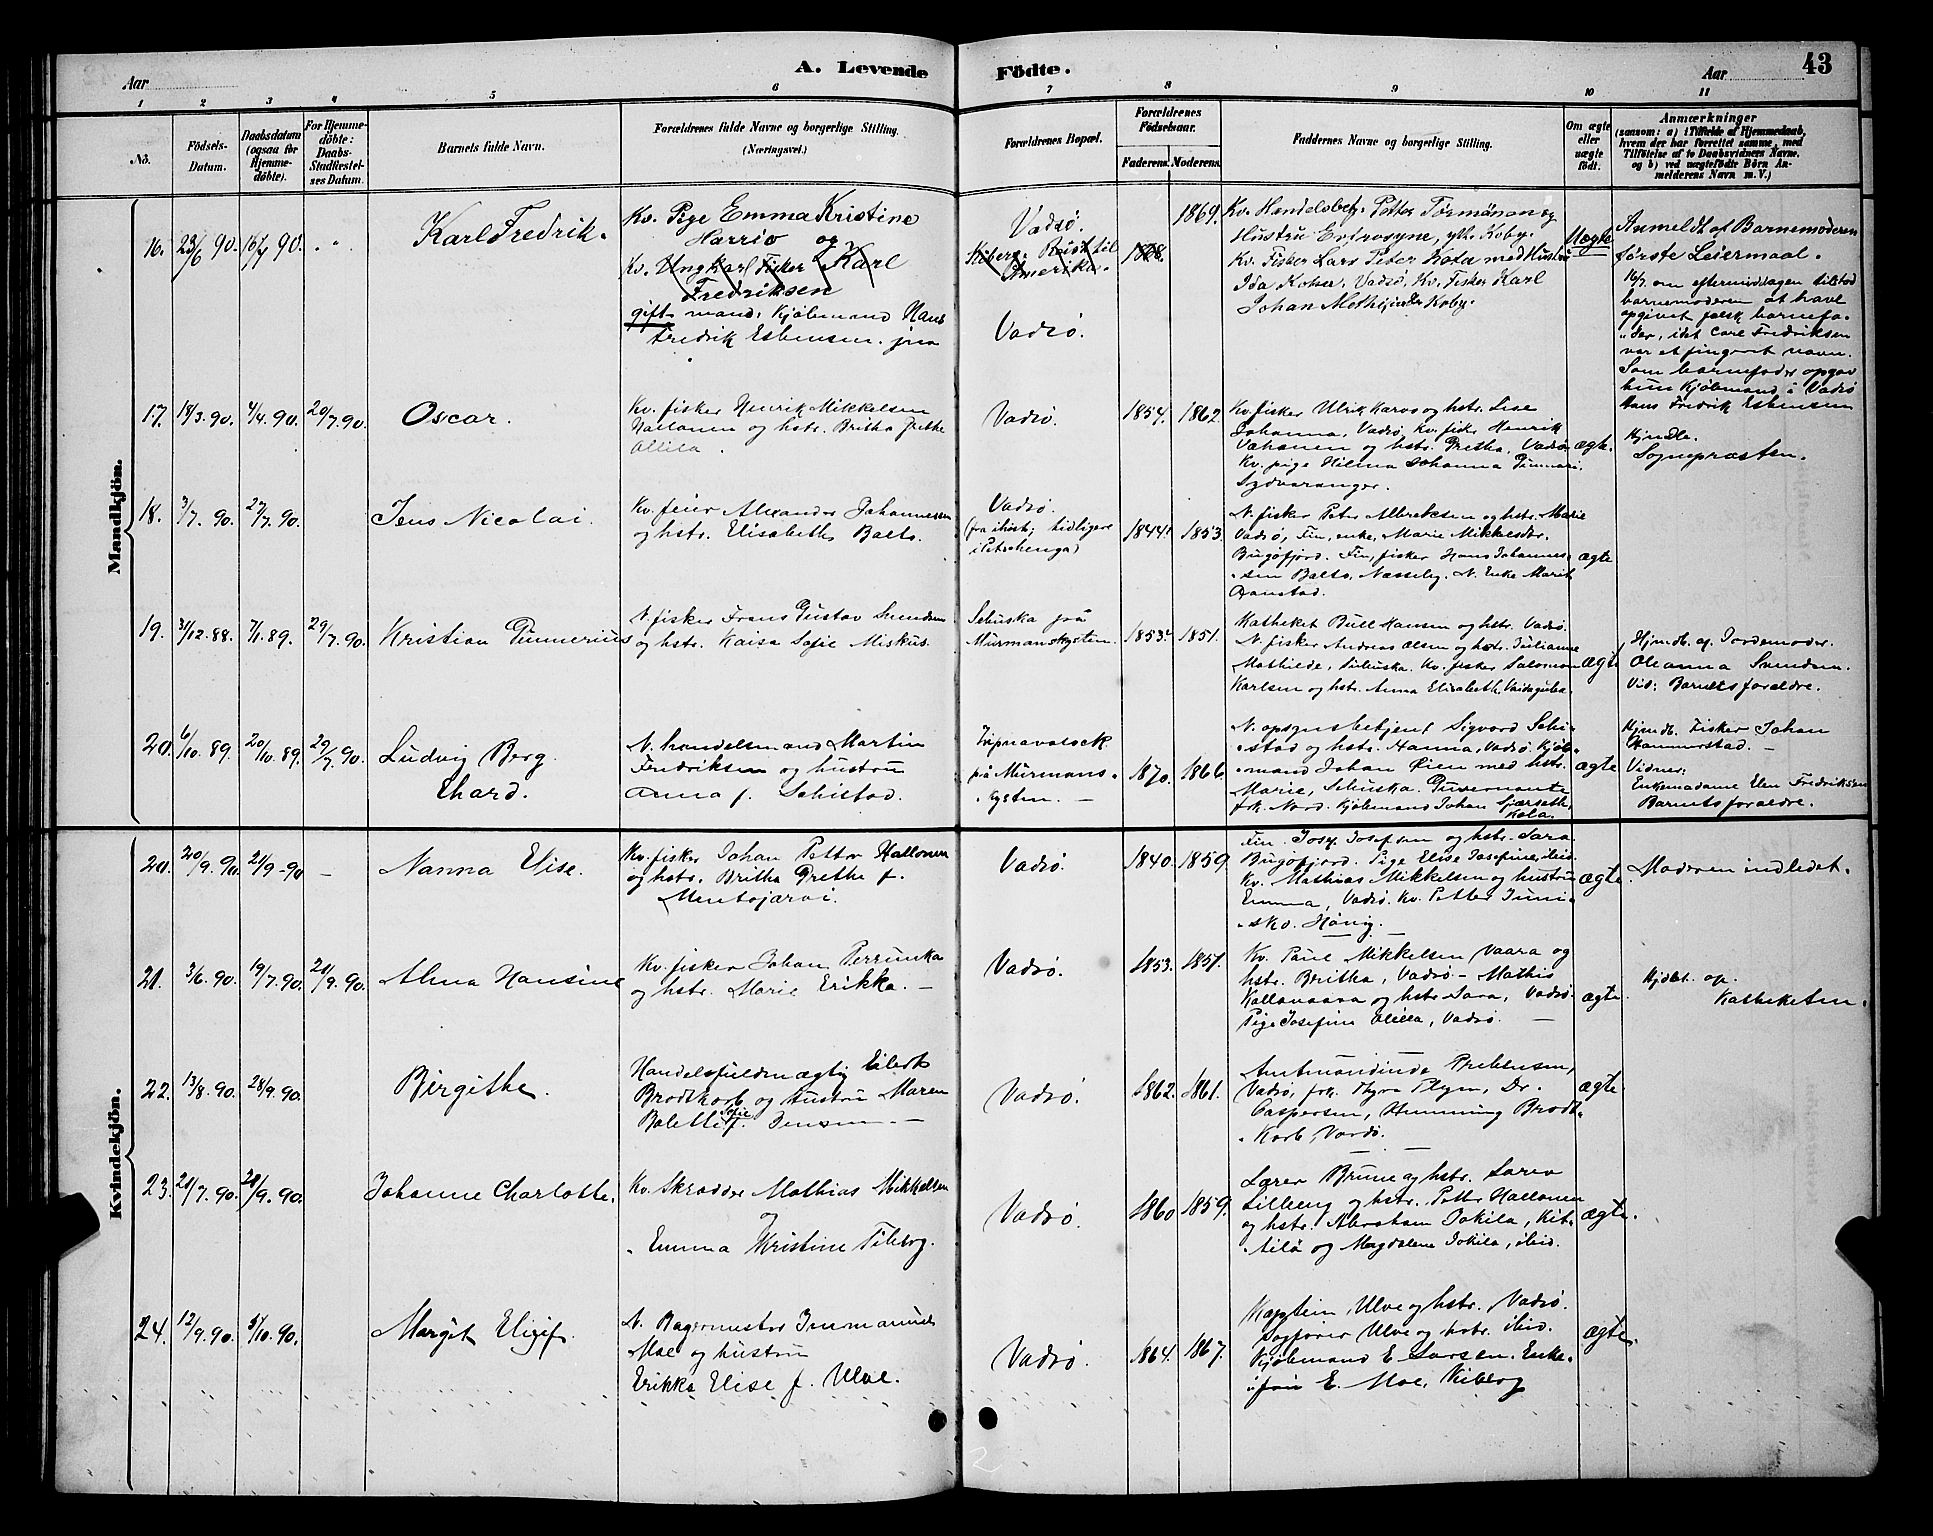 Aar
A. Levende
Födte.
Aar
43
1 2 3 4 5 6 7 8 9 10 11
No.
Födsels-
Datum.
Daabsdatum
(ogsaa for
Hjemme-
döbte).
For Hjemme-
döbte:
Daabs-
Stadfæstel-
ses Datum.
Barnets fulde Navn.
Forældrenes fulde Navne og borgerlige Stilling.
(Næringsvei.)
Forældrenes Bopæl.
Forældrenes
Födselsaar.
Faderens.
Moderens.
Faddernes Navne og borgerlige Stilling.
Om ægte
eller
uægte
födt.
Anmærkninger
(saasom: a) i Tilfælde af Hjemmedaab,
hvem der har forrettet samme, med
Tilföielse af to Daabsvidners Navne,
og b) ved uægtefödte Börn An-
melderens Navn m. V.)
Mandkjön.
16. 23/6 90. 16/7 90. "
Karl Fredrik.
Kv. Pige Emma Kristine
Harrio og
Kv. Ungkarl Fisker Karl
Fredriksen
gift mand, Kjöbmand Hans
Fredrik Esbensen
Vadsö.
Kiberg. Reist til
Amerika.
Vadsö.
1868. 1869.
Kv. Handelsbetj. Petter
Hustru
Kv. Fisker Lars Peter Kota med Hustru
Ida Vadsö, Kv. Fisker Karl
Johan
Uægte
Anmeldt af Barnemoderen
förste Leiermaal.
16/7. om eftermiddagen tilstod
barnemoderen at have
opgivet falsk barnefa-
der, idet Carl Fredriksen
var et fingeret navn.
Som barnefader opgav
hun Kjöbmand i Vadsö
Hans Fredrik Esbensen
17. 18/3. 90. 4/4. 90. 20/7. 90.
Oscar.
Kv. fisker Henrik Mikkelsen
og hstr. Britha Grethe
Ollila.
Vadsö.
1854. 1862.
Kv. fisker Ulrik Karvo og hstr. Lise
Johanna, Vadsö, Kv. fisk. Henrik
og hstr. Gretha, Vadsö
Kv. pige Hilma Johanna
Sydvaranger.
ægte.
Hjmdt.
Sognepræsten.
18. 3/7. 90. 27/7. 90.
Jens Nicolai.
Kv. feier Alexander Johannessen
og hstr. Elisabeth Balto.
Vadsö.
(fra ihöst; tidligere
i Petschenga)
1844. 1853.
N. fisker Peter Albretsen og hstr. Marie
Vadsö, Fin, enke, Marie Mikkelsdtr.
Bugöfjord. Fin, fisker Hans Johannes-
sen Balto, Næsseby. N. Enke Marit
ægte
19. 31/12. 88. 7/1. 89. 29/7. 90.
Kristian Gunnerius
N. fisker Frans Gustav Svendsen
og hstr. Kaisa Sofie Miskus.
på
Murmanskysten.
1853. 1851.
Katheket Bull Hansen og hstr. Vadsö.
N. fisker Andreas Olsen og hstr. Julianne
Mathilde, Kv. fisker Salomon
Karlsen og hstr. Anna Elisabeth, Vaidaguba.
ægte
Hjmdb. af Jordemoder.
Oleanna Svendsen.
Vid: Barnets forældre.
20. 6/10. 89. 20/10. 89. 29/7. 90.
Ludvig Berg
Ehard.
N. handelsmand Martin
Fredriksen og hustru
Anna f. Schistad.
Zipnavolock
på Murmans-
kysten. —
1870. 1866.
N. opsynsbetjent Sigvard Schi-
stad og hstr. Hanna, Vadsö. Kjöb-
mand Johan Öien med hstr.
Marie, Guvernante
frk. Nord. Kjöbmand Johan
Kola.
ægte
Hjmdb. Fisker Johan
Hammerstad. —
Vidner:
Enkemadame Elen Fredriksen
Barnets forældre.
Kvindekjön.
20. 20/9. 90. 21/9 - 90 —
Nanna Elise.
Kv. fisker Johan Petter Hallonen
og hstr. Britha Grethe f.
Mentojarvi.
Vadsö.
1840. 1859.
Fin. Josef Josefsen og hstr. Sara
Bugöfjord. Pige Elise Josefine, ibid.
Kv. Mathias Mikkelsen og hustru
Emma, Vadsö. Kv. Petter Juni-
sko.
ægte
Moderen indledet.
21. 3/6. 90. 19/7. 90. 21/9. 90.
Alma Hansine
Kv. fisker Johan Perrunka
og hstr. Marie Erikka. —
Vadsö.
1853. 1857.
Kv. Paul Mikkelsen Vaara og
hstr. Britha, Vadsö. — Mathis
Kallavaara og hstr. Sara, Vadsö.
Pige Josefine Olilla, Vadsö. —
ægte.
Hjdöbt. af.
Katheketen.
22. 13/8. 90. 28/9. 90.
Birgithe.
Handelsfuldmægtig Eilert
Brodtkorb og hustru Maren
Bolette Sofie f. Jensen. —
Vadsö.
1862. 1861.
Amtmandinde Prebensen,
Vadsö, frk. Thyra Dr.
Caspersen, Henning Brodt-
korb, Vardö.
ægte
23. 21/7. 90. 28/9. 90.
Johanne Charlotte.
Kv. Skrædder Mathias Mikkelsen
og
Emma Kristine Filberg.
Vadsö.
1860 1859.
Lærer Bruun og hstr. Lærer
Lilleeng og hstr. Petter Hallonen
og hstr. Abraham Jokila, Kit-
tilä og Magdalene Jokila, ibid.
ægte.
24. 12/9. 90. 5/10. 90.
Margit Eligif.
N. Bagermester Immanuel
Moe og hustru
Erikka Elise f. Ulve.
Vadsö.
1864. 1867.
Kaptein, Ulve og hstr. Vadsö.
Sagförer Ulve og hstr. ibid.
Kjöbmand E Larsen. Enke-
fru E. Moe, Kiberg
ægte.
2